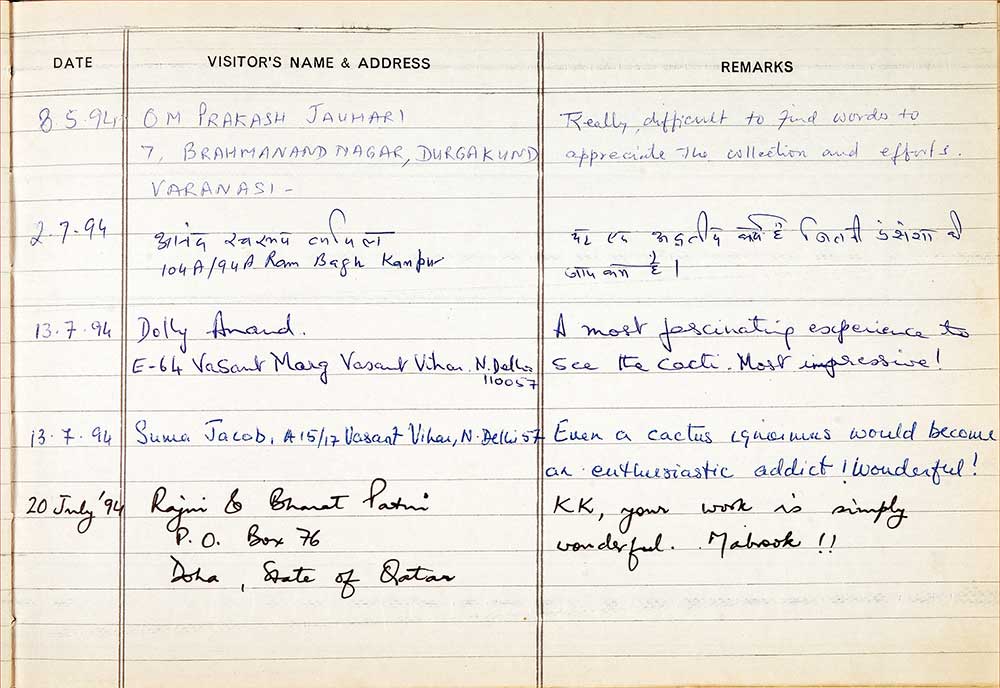 DATE VISITOR'S NAME & ADDRESS REMARKS
8.5.94 OM PRAKASH JAUHARI Really, difficult to find words to
7, BRAHMANAND NAGAR, DURGAKUND appreciate the collection and efforts.
VARANASI -
2.7.94 आनंद स्वरूप यह एक अद्वतीय कार्य है जितनी प्रशंसा की
104A/94A Ram Bagh Kanpur जाय कम है।
13.7.94 Dolly Anand. A most fascinating experience to
E-64 Vasant Marg Vasant Vihar. N. Delhi see the cacti. Most impressive!
110057
13.7.94 Suma Jacob, A15/17 Vasant Vihar, N. Delhi 57 Even a cactus ignoramus would become
an enthusiastic addict! Wonderful!
20 July '94 Rajni & Bharat Patni KK, your work is simply
P.O. Box 76 wonderful. Mabrook !!
Doha, State of Qatar